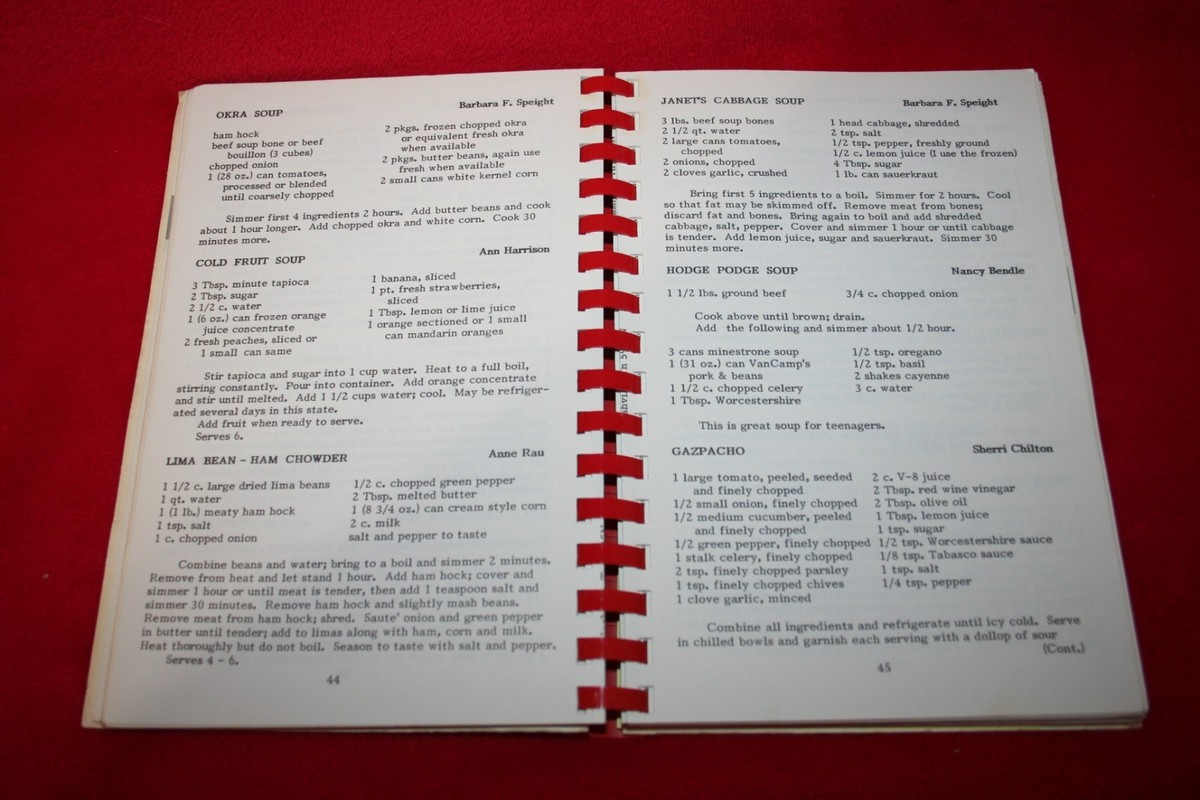 OKRA SOUP Barbara F. Speight
ham hock
beef soup bone or beef
bouillon (3 cubes)
chopped onion
1 (28 oz.) can tomatoes,
processed or blended
until coarsely chopped
2 pkgs. frozen chopped okra
or equivalent fresh okra
when available
2 pkgs. butter beans, again use
fresh when available
2 small cans white kernel corn
Simmer first 4 ingredients 2 hours. Add butter beans and cook
about 1 hour longer. Add chopped okra and white corn. Cook 30
minutes more.
COLD FRUIT SOUP Ann Harrison
3 Tbsp. minute tapioca
2 Tbsp. sugar
2 1/2 c. water
1 (6 oz.) can frozen orange
juice concentrate
2 fresh peaches, sliced or
1 small can same
1 banana, sliced
1 pt. fresh strawberries,
sliced
1 Tbsp. lemon or lime juice
1 orange sectioned or 1 small
can mandarin oranges
Stir tapioca and sugar into 1 cup water. Heat to a full boil,
stirring constantly. Pour into container. Add orange concentrate
and stir until melted. Add 1 1/2 cups water; cool. May be refriger-
ated several days in this state.
Add fruit when ready to serve.
Serves 6.
LIMA BEAN - HAM CHOWDER Anne Rau
1 1/2 c. large dried lima beans
1 qt. water
1 (1 lb.) meaty ham hock
1 tsp. salt
1 c. chopped onion
1/2 c. chopped green pepper
2 Tbsp. melted butter
1 (8 3/4 oz.) can cream style corn
2 c. milk
salt and pepper to taste
Combine beans and water; bring to a boil and simmer 2 minutes.
Remove from heat and let stand 1 hour. Add ham hock; cover and
simmer 1 hour or until meat is tender, then add 1 teaspoon salt and
simmer 30 minutes. Remove ham hock and slightly mash beans.
Remove meat from ham hock; shred. Saute' onion and green pepper
in butter until tender; add to limas along with ham, corn and milk.
Heat thoroughly but do not boil. Season to taste with salt and pepper.
Serves 4 - 6.
44
JANET'S CABBAGE SOUP Barbara F. Speight
3 lbs. beef soup bones
2 1/2 qt. water
2 large cans tomatoes,
chopped
2 onions, chopped
2 cloves garlic, crushed
1 head cabbage, shredded
2 tsp. salt
1/2 tsp. pepper, freshly ground
1/2 c. lemon juice (I use the frozen)
4 Tbsp. sugar
1 lb. can sauerkraut
Bring first 5 ingredients to a boil. Simmer for 2 hours. Cool
so that fat may be skimmed off. Remove meat from bones;
discard fat and bones. Bring again to boil and add shredded
cabbage, salt, pepper. Cover and simmer 1 hour or until cabbage
is tender. Add lemon juice, sugar and sauerkraut. Simmer 30
minutes more.
HODGE PODGE SOUP Nancy Bendle
1 1/2 lbs. ground beef 3/4 c. chopped onion
Cook above until brown; drain.
Add the following and simmer about 1/2 hour.
3 cans minestrone soup
1 (31 oz.) can VanCamp's
pork & beans
1 1/2 c. chopped celery
1 Tbsp. Worcestershire
1/2 tsp. oregano
1/2 tsp. basil
2 shakes cayenne
3 c. water
This is great soup for teenagers.
GAZPACHO Sherri Chilton
1 large tomato, peeled, seeded
and finely chopped
1/2 small onion, finely chopped
1/2 medium cucumber, peeled
and finely chopped
1/2 green pepper, finely chopped
1 stalk celery, finely chopped
2 tsp. finely chopped parsley
1 tsp. finely chopped chives
1 clove garlic, minced
2 c. V-8 juice
2 Tbsp. red wine vinegar
2 Tbsp. olive oil
1 Tbsp. lemon juice
1 tsp. sugar
1/2 tsp. Worcestershire sauce
1/8 tsp. Tabasco sauce
1 tsp. salt
1/4 tsp. pepper
Combine all ingredients and refrigerate until icy cold. Serve
in chilled bowls and garnish each serving with a dollop of sour
(Cont.)
45